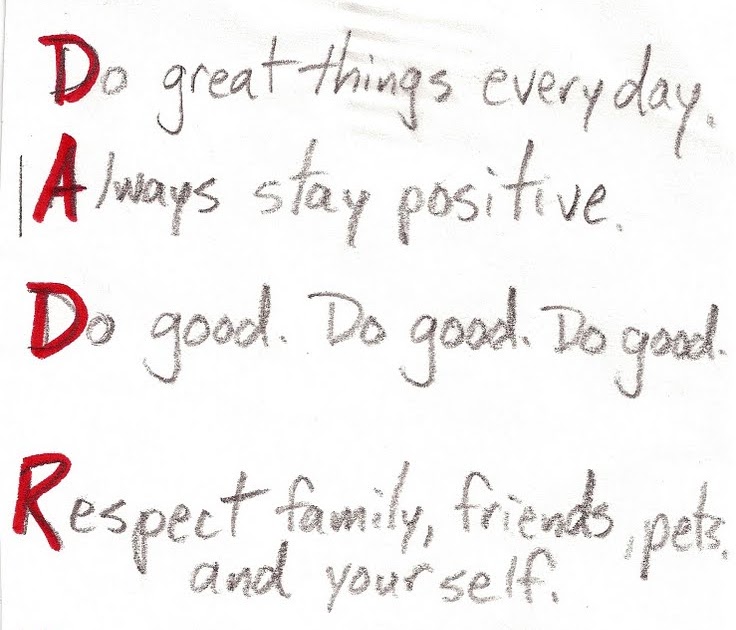 Do great things everyday.
Always stay positive.
Do good. Do good. Do good.
Respect family, friends, pets,
and yourself.